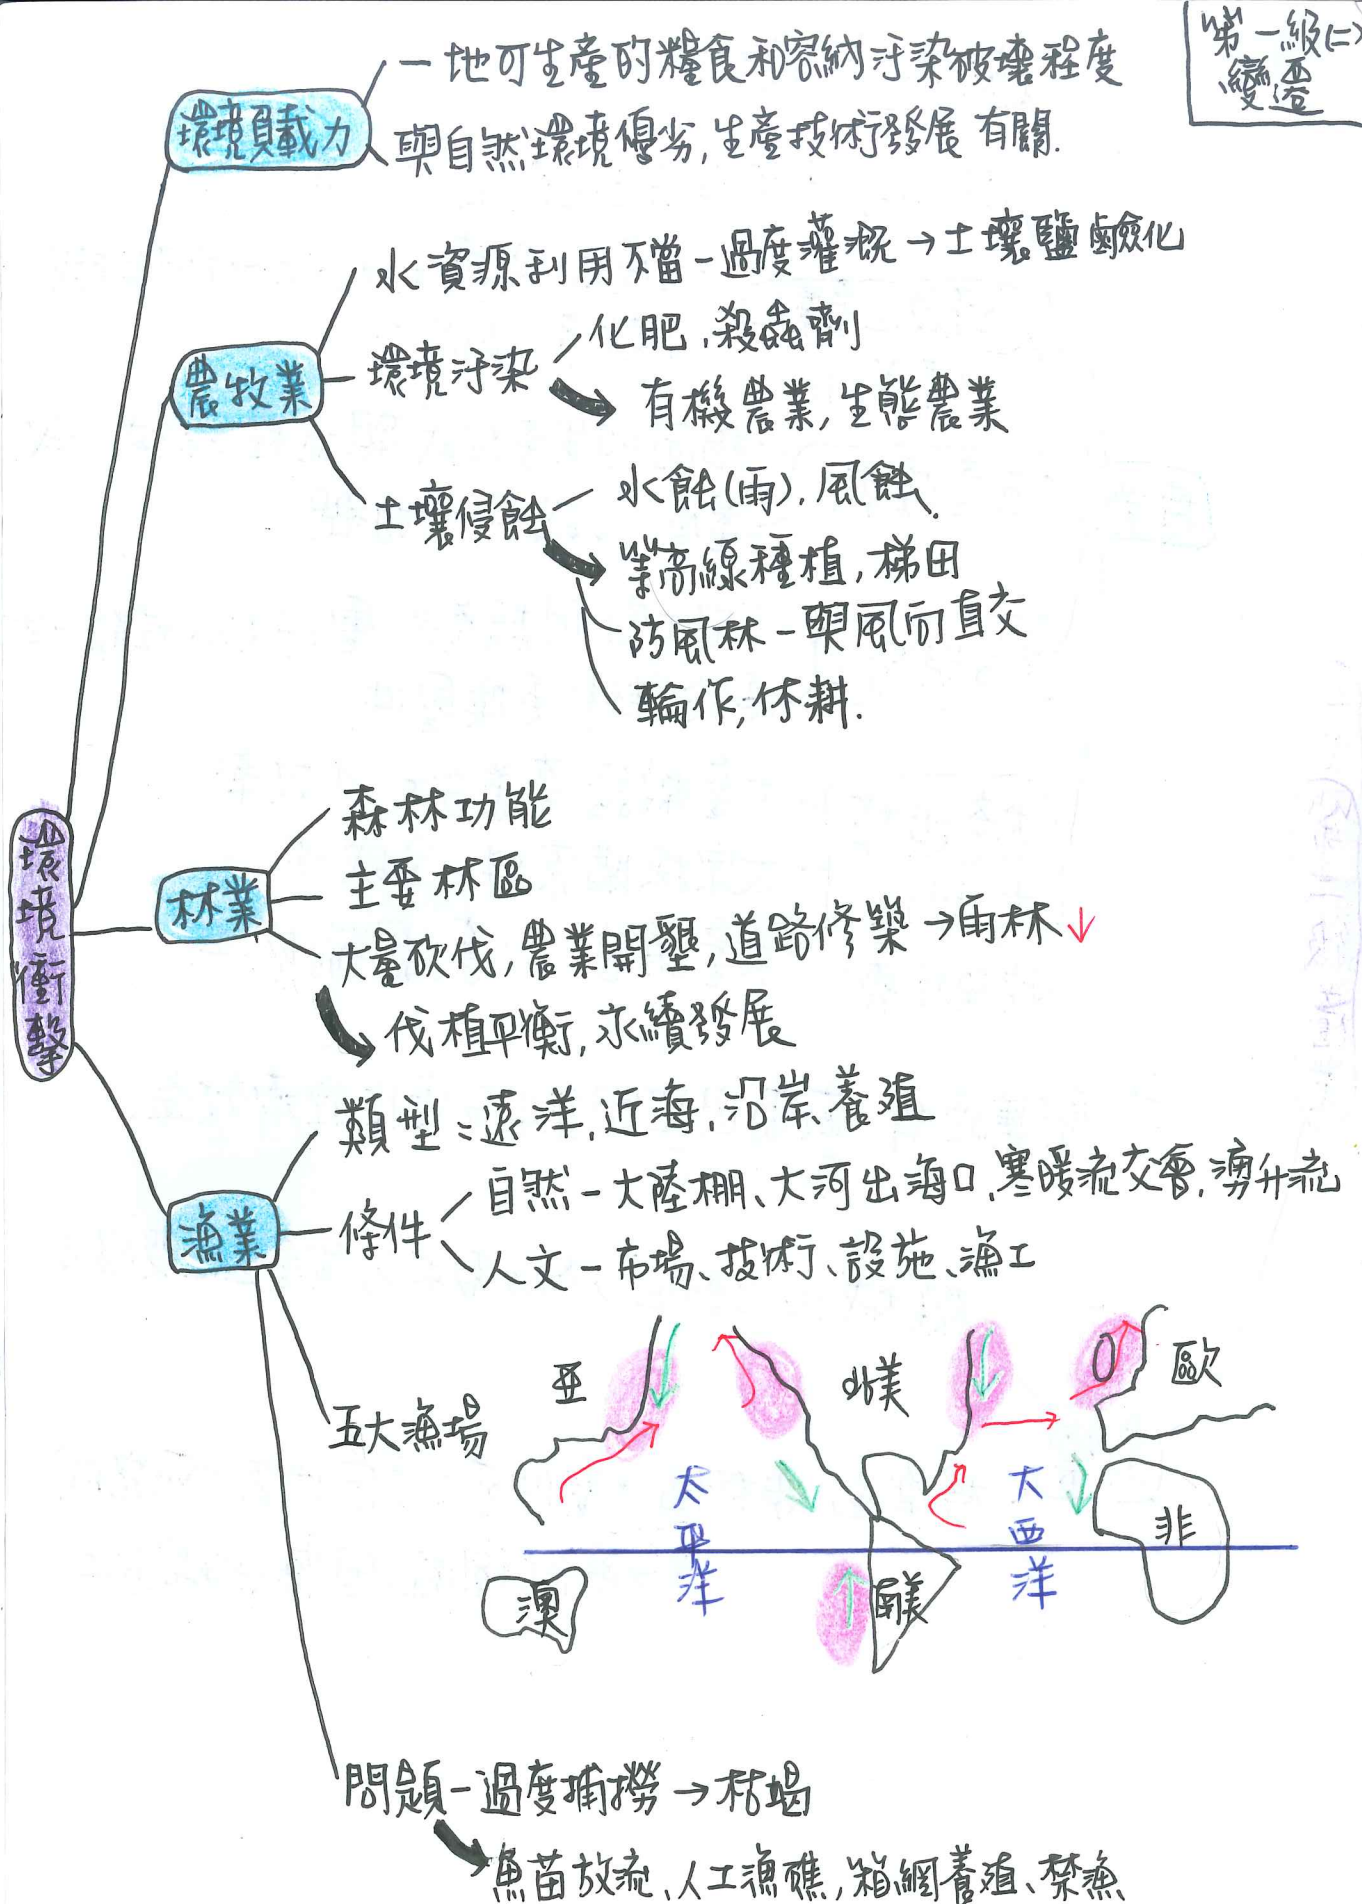 第一級(二)
變遷
環境負載力
一地可生產的糧食和容納汙染破壞程度
與自然環境優劣,生產技術發展 有關.
農牧業
水資源利用不當-過度灌溉→土壤鹽鹼化
環境汙染
化肥,殺蟲劑
有機農業,生態農業
土壤侵蝕
水蝕(雨),風蝕.
等高線種植,梯田
防風林-與風向直交
輪作,休耕.
環境衝擊
林業
森林功能
主要林區
大量砍伐,農業開墾,道路修築→雨林↓
伐植平衡,永續發展
漁業
類型:遠洋,近海,沿岸、養殖
條件
自然-大陸棚、大河出海口,寒暖流交會,湧升流
人文-市場、技術、設施、漁工
五大漁場
亞
北美
歐
太平洋
大西洋
非
澳
南美
問題-過度捕撈→枯竭
魚苗放流、人工漁礁,箱網養殖、禁漁